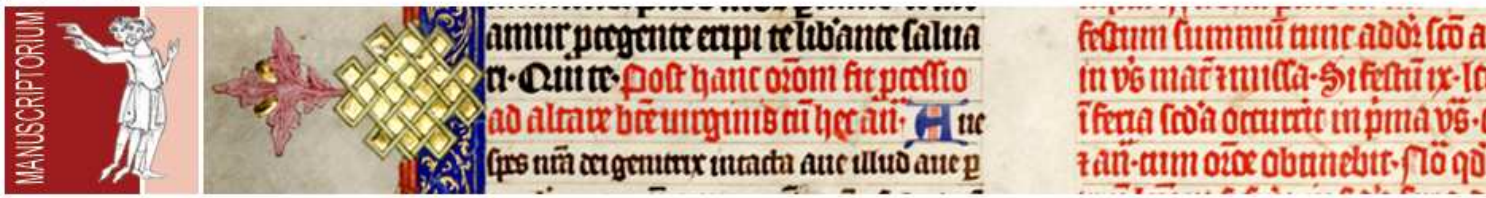 MANUSCRIPTORIUM
amur ꝓtegente eripi te lib'ante salua
ri· Qui te· Post hanc orōm fit ꝓcessio
ad altare bt̄e uirginis cū hec añ· Aue
spes nr̄a dei genitrix intacta aue illud aue ꝑ
festum summū tunc
in vs̄ mat̄ ⁊ missa· Si festū ix·
ī feria scd̄a occurrit in pͥma vs̄·
⁊ añ· cum orōe obtinebit·